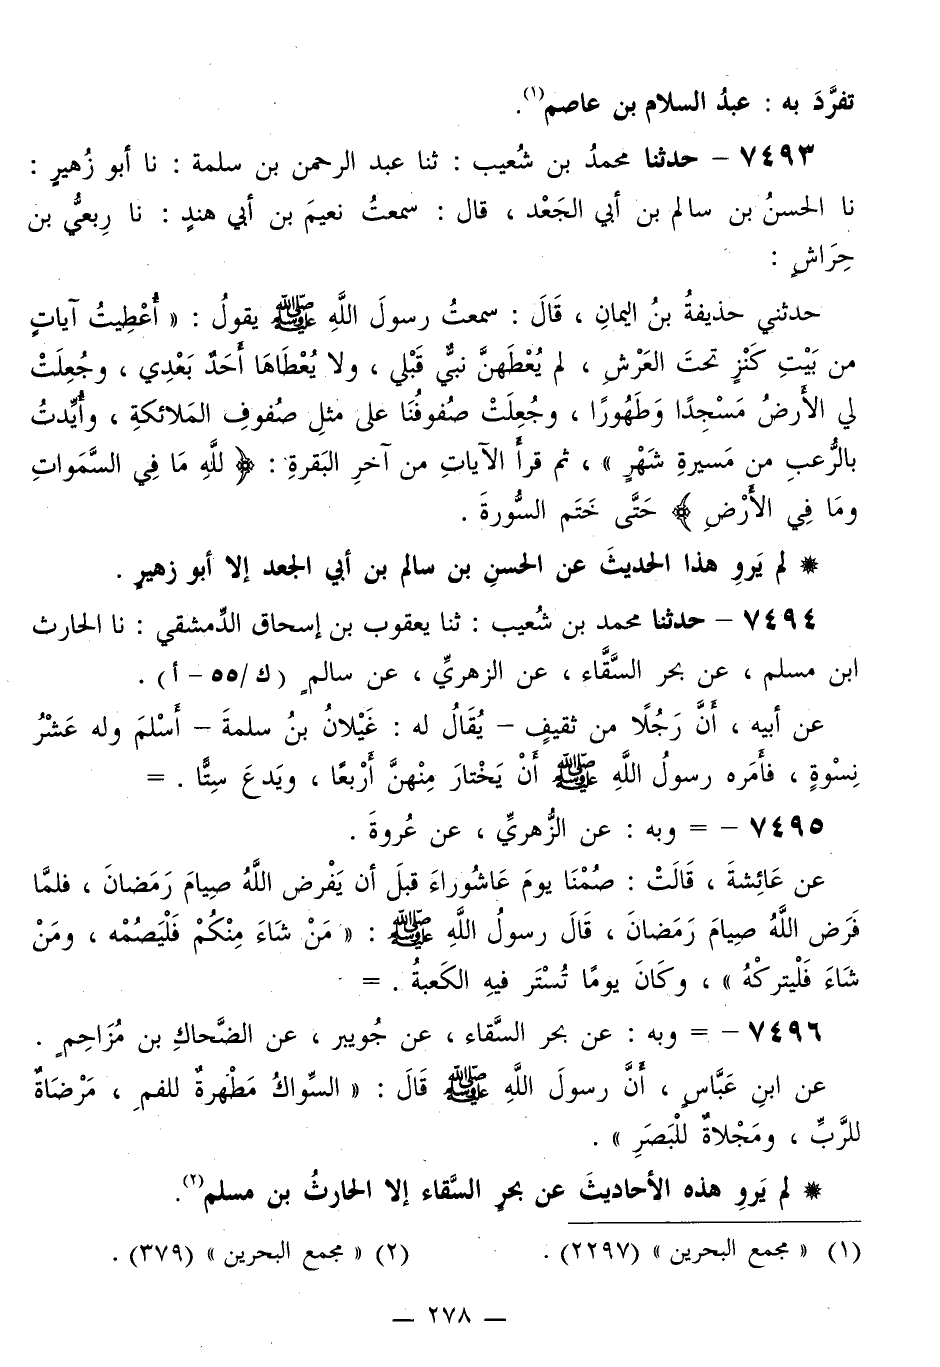 تفرَّدَ به : عبدُ السلام بن عاصم(١).
٧٤٩٣ – حدثنا محمدُ بن شُعيب : ثنا عبد الرحمن بن سلمة : نا أبو زُهيرٍ :
نا الحسنُ بن سالم بن أبي الجَعْد ، قال : سمعتُ نعيمَ بن أبي هندٍ : نا رِبعيُّ بن
حِرَاشٍ :
حدثني حذيفةُ بنُ اليمانِ ، قَالَ : سمعتُ رسولَ اللَّهِ ﷺ يقولُ : « أُعْطِيتُ آياتٍ
من بَيْتِ كَنْزٍ تحتَ العَرْشِ ، لم يُعْطَهنَّ نبيٌّ قَبْلي ، ولا يُعْطَاهَا أَحَدٌ بَعْدِي ، وجُعِلَتْ
لي الأَرضُ مَسْجدًا وَطَهُورًا ، وجُعِلَتْ صُفوفُنَا على مثلِ صُفوفِ المَلائكةِ ، وأُيِّدتُ
بالرُّعبِ من مَسيرةِ شَهْرٍ » ، ثم قرأَ الآياتِ من آخرِ البَقرةِ : ﴿ للَّهِ مَا فِي السَّمَواتِ
ومَا فِي الأَرْضِ ﴾ حَتَّى خَتَم السُّورةَ .
* لم يَروِ هذا الحديثَ عن الحسنِ بن سالم بن أبي الجعد إلا أبو زهيرٍ .
٧٤٩٤ – حدثنا محمد بن شُعيب : ثنا يعقوب بن إسحاق الدِّمشقي : نا الحارث
ابن مسلم ، عن بحر السَّقَّاء ، عن الزهريِّ ، عن سالمٍ (ك/٥٥ – أ) .
عن أبيه ، أَنَّ رَجُلًا من ثقيفٍ – يُقَالُ له : غَيْلانُ بنُ سلمةَ – أَسْلمَ وله عَشْرُ
نِسْوةٍ ، فأَمَره رسولُ اللَّهِ ﷺ أَنْ يَخْتارَ مِنْهنَّ أَرْبعًا ، ويَدعَ سِتًّا . =
٧٤٩٥ – = وبه : عن الزُّهريِّ ، عن عُروةَ .
عن عَائِشةَ ، قَالَتْ : صُمْنَا يومَ عَاشُوراءَ قبلَ أن يَفْرض اللَّهُ صِيامَ رَمَضانَ ، فلمَّا
فَرَض اللَّهُ صِيامَ رَمَضانَ ، قَالَ رسولُ اللَّهِ ﷺ : « مَنْ شَاءَ مِنْكُمْ فَلْيَصُمْه ، ومَنْ
شَاءَ فَلْيتركْهُ » ، وكَانَ يومًا تُسْتَر فيهِ الكَعبةُ . =
٧٤٩٦ – = وبه : عن بحر السَّقاء ، عن جُويبر ، عن الضَّحاكِ بن مُزَاحِمٍ .
عن ابنِ عَبَّاسٍ ، أَنَّ رسولَ اللَّهِ ﷺ قَالَ : « السِّواكُ مَطْهرةٌ للفمِ ، مَرْضَاةٌ
للرَّبِّ ، ومَجْلاةٌ للْبَصَرِ » .
* لم يَروِ هذه الأحاديثَ عن بحرٍ السَّقاء إلا الحارثُ بن مسلم(٢).
(١) « مجمع البحرين » (٢٢٩٧) . (٢) « مجمع البحرين » (٣٧٩) .
— ٢٧٨ —